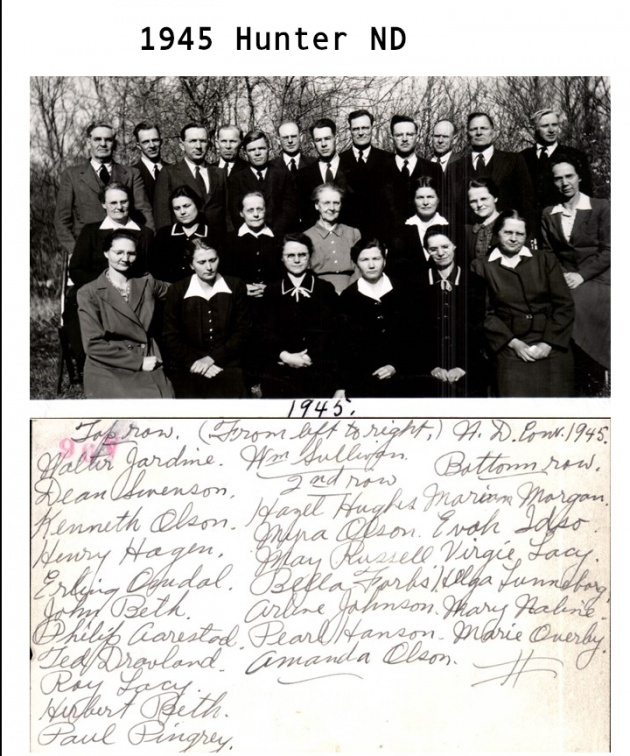 1945 Hunter ND
1945.
Top row. (From left to right.) N. D. Conv. 1945.
Walter Jardine.
Dean Swenson.
Kenneth Olson.
Henry Hagen.
Erling Omdal.
John Beth.
Philip Aarestad.
Ted Dravland.
Roy Lacy
Herbert Beth.
Paul Pingrey.
Wm Sullivan.
2nd row
Hazel Hughs
Mina Olson.
May Russell
Bella Forbs
Arline Johnson.
Pearl Hanson.
Amanda Olson.
Bottom row.
Mariam Morgan.
Evah Idso.
Virgie Lacy.
Helga Tunneborg.
Mary Haline.
Marie Overby.